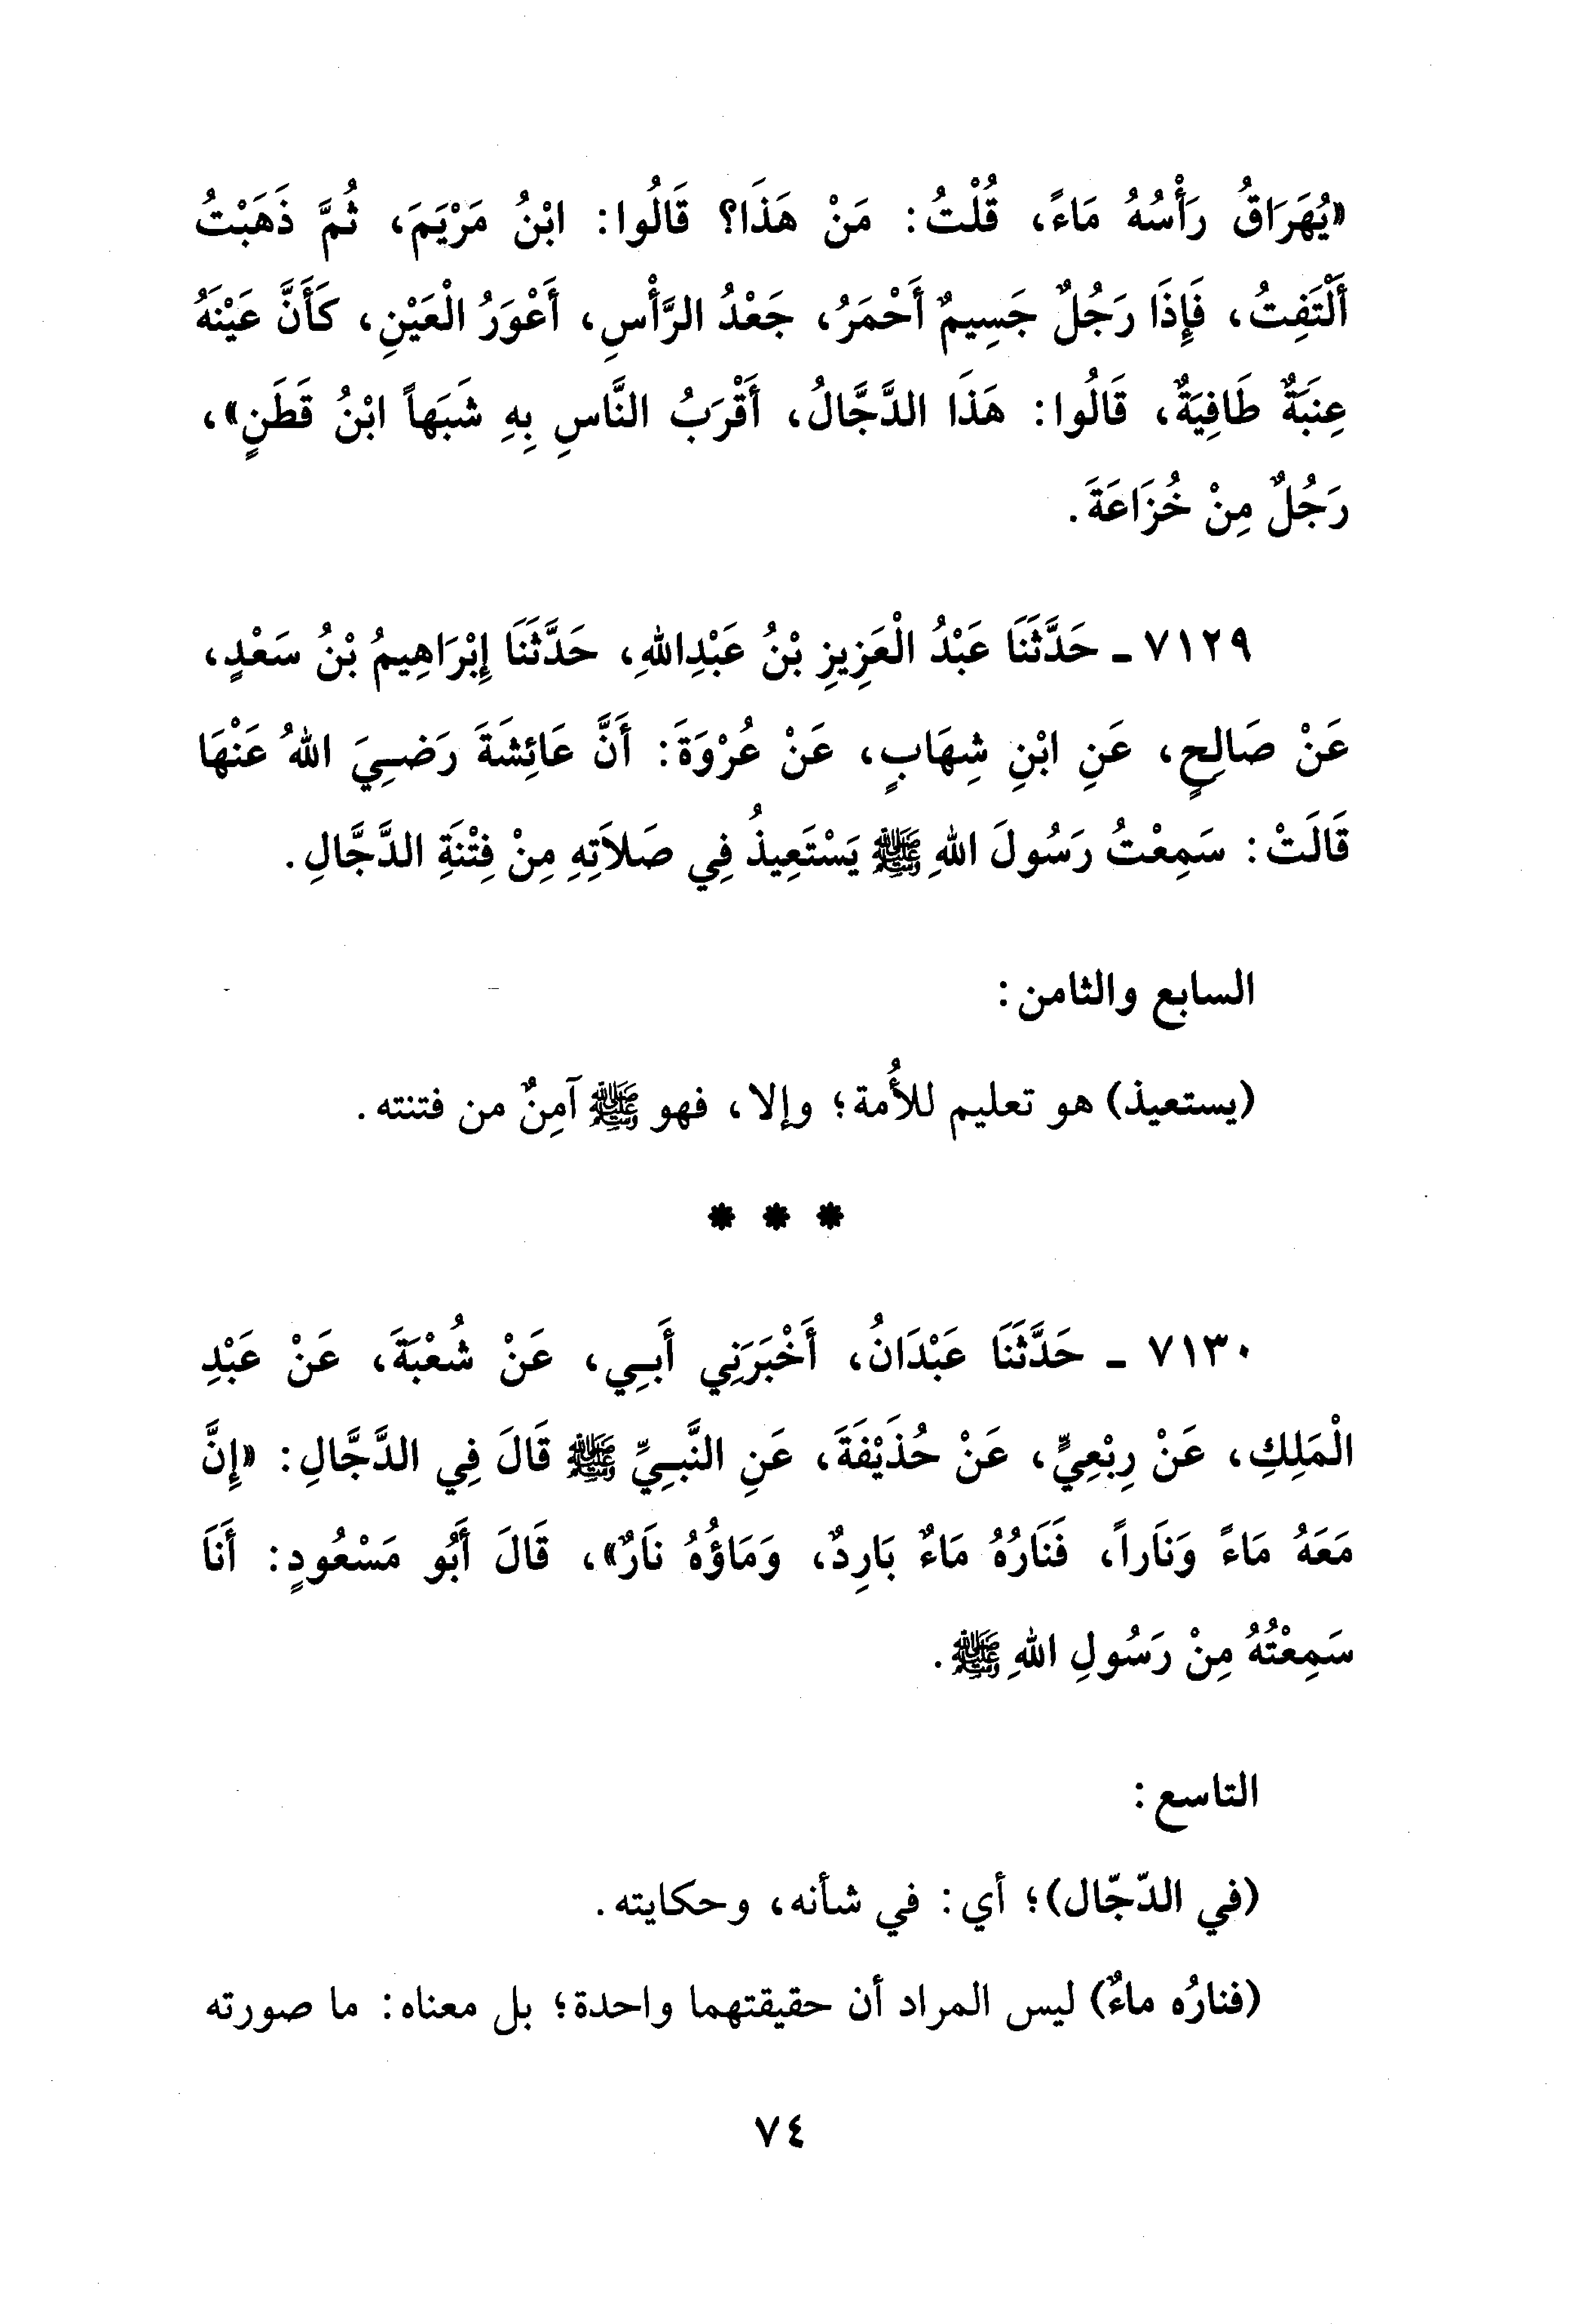 «يُهَرَاقُ رَأْسُهُ مَاءً، قُلْتُ: مَنْ هَذَا؟ قَالُوا: ابْنُ مَرْيَمَ، ثُمَّ ذَهَبْتُ
أَلْتَفِتُ، فَإِذَا رَجُلٌ جَسِيمٌ أَحْمَرُ، جَعْدُ الرَّأْسِ، أَعْوَرُ الْعَيْنِ، كَأَنَّ عَيْنَهُ
عِنَبَةٌ طَافِيَةٌ، قَالُوا: هَذَا الدَّجَّالُ، أَقْرَبُ النَّاسِ بِهِ شَبَهاً ابْنُ قَطَنٍ»،
رَجُلٌ مِنْ خُزَاعَةَ.
٧١٢٩ ـ حَدَّثَنَا عَبْدُ الْعَزِيزِ بْنُ عَبْدِاللهِ، حَدَّثَنَا إِبْرَاهِيمُ بْنُ سَعْدٍ،
عَنْ صَالِحٍ، عَنِ ابْنِ شِهَابٍ، عَنْ عُرْوَةَ: أَنَّ عَائِشَةَ رَضِيَ اللهُ عَنْهَا
قَالَتْ: سَمِعْتُ رَسُولَ اللهِ ﷺ يَسْتَعِيذُ فِي صَلاَتِهِ مِنْ فِتْنَةِ الدَّجَّالِ.
السابع والثامن:
(يستعيذ) هو تعليم للأُمة؛ وإلا، فهو ﷺ آمِنٌ من فتنته.
* * *
٧١٣٠ ـ حَدَّثَنَا عَبْدَانُ، أَخْبَرَنِي أَبِي، عَنْ شُعْبَةَ، عَنْ عَبْدِ
الْمَلِكِ، عَنْ رِبْعِيٍّ، عَنْ حُذَيْفَةَ، عَنِ النَّبِيِّ ﷺ قَالَ فِي الدَّجَّالِ: «إِنَّ
مَعَهُ مَاءً وَنَاراً، فَنَارُهُ مَاءٌ بَارِدٌ، وَمَاؤُهُ نَارٌ»، قَالَ أَبُو مَسْعُودٍ: أَنَا
سَمِعْتُهُ مِنْ رَسُولِ اللهِ ﷺ.
التاسع:
(في الدّجّال)؛ أي: في شأنه، وحكايته.
(فنارُه ماءٌ) ليس المراد أن حقيقتهما واحدة؛ بل معناه: ما صورته
٧٤